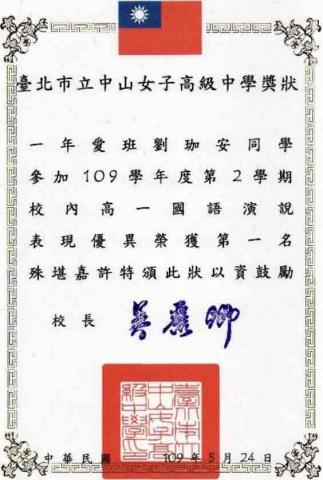 臺北市立中山女子高級中學獎狀
一年愛班劉珈安同學
參加109學年度第2學期
校內高一國語演說
表現優異榮獲第一名
殊堪嘉許特頒此狀以資鼓勵
校長
中華民國 109年5月24日